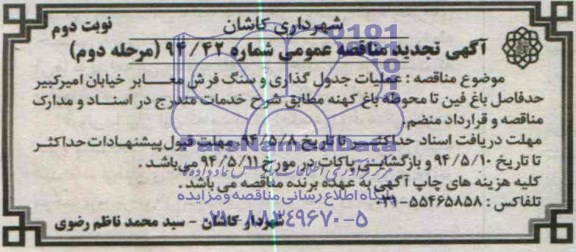 شهرداری کاشان
نوبت دوم
آگهی تجدید مناقصه عمومی شماره ۹۴/۴۲ (مرحله دوم)
موضوع مناقصه : عملیات جدول گذاری و سنگ فرش معابر خیابان امیرکبیر
حدفاصل باغ فین تا محوطه باغ کهنه مطابق شرح خدمات مندرج در اسناد و مدارک
مناقصه و قرارداد منضم
مهلت دریافت اسناد حداکثر تا تاریخ ۹۴/۵/۸ مهلت قبول پیشنهادات حداکثر
تا تاریخ ۹۴/۵/۱۰ و بازگشایی پاکات در مورخ ۹۴/۵/۱۱ می باشد .
کلیه هزینه های چاپ آگهی به عهده برنده مناقصه می باشد .
تلفاکس : ۵۵۴۶۵۸۵۸-۰۳۱
شهردار کاشان - سید محمد ناظم رضوی
ParsNamadData
پایگاه اطلاع رسانی مناقصه و مزایده
۰۲۱-۸۸۳۴۹۶۷۰-۵